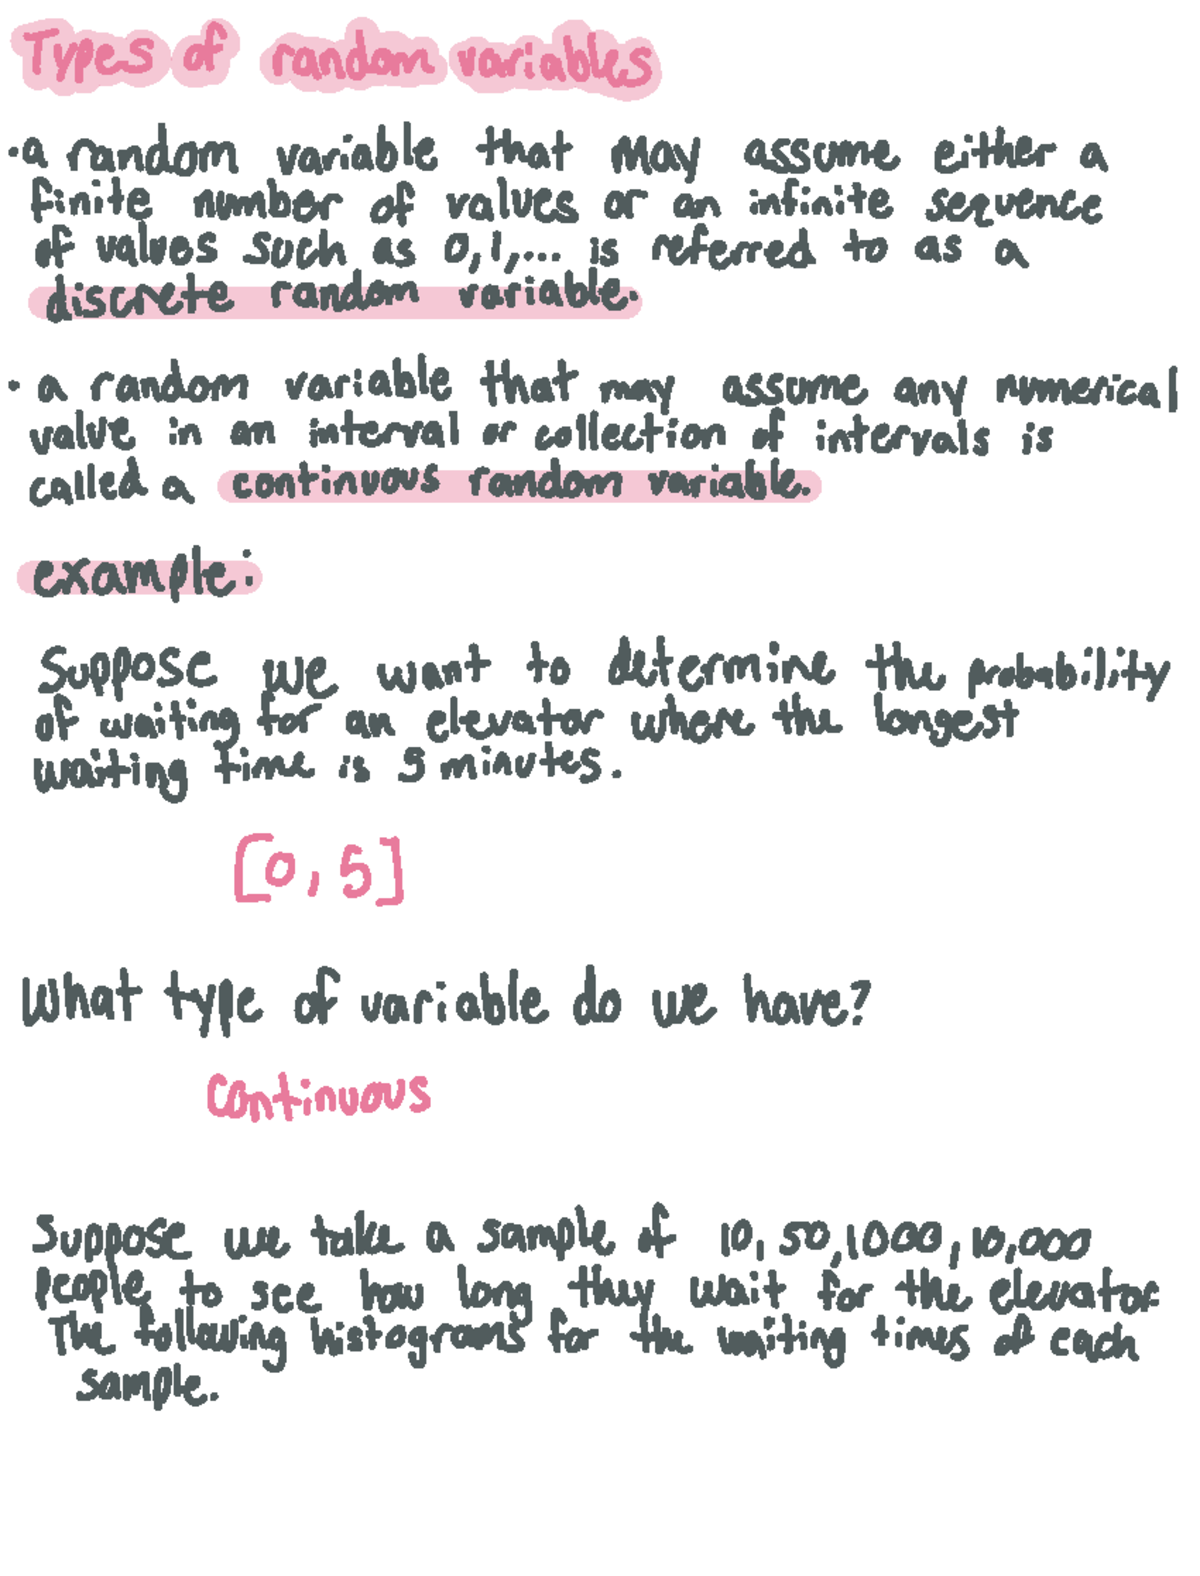 Types of random variables
·a random variable that may assume either a
finite number of values or an infinite sequence
of values such as 0,1,... is referred to as a
discrete random variable.
· a random variable that may assume any numerical
value in an interval or collection of intervals is
called a continuous random variable.
example:
Suppose we want to determine the probability
of waiting for an elevator where the longest
waiting time is 5 minutes.
[0,5]
What type of variable do we have?
continuous
Suppose we take a sample of 10, 50,1000,10,000
people to see how long they wait for the elevator.
The following histograms for the waiting times of each
sample.